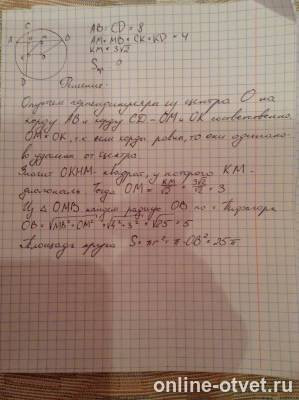 C
A
B
D
AB = CD = 8
AM = MB = CK = KD = 4
KM = 3√2
S
Решение:
Опустим перпендикуляры из центра O на
хорду AB и хорду CD – OM и OK соответственно.
OM = OK, т.к. если хорды равны, то они одинако-
во удалены от центра.
Значит OKHM – квадрат, у которого KM –
диагональ. Тогда OM = KM/√2 = 3√2/√2 = 3
Из △ OMB найдем радиус OB по т. Пифагора
OB = √MB² + OM² = √4² + 3² = √25 = 5
Площадь круга S = πr² = π·OB² = 25π
online-otvet.ru